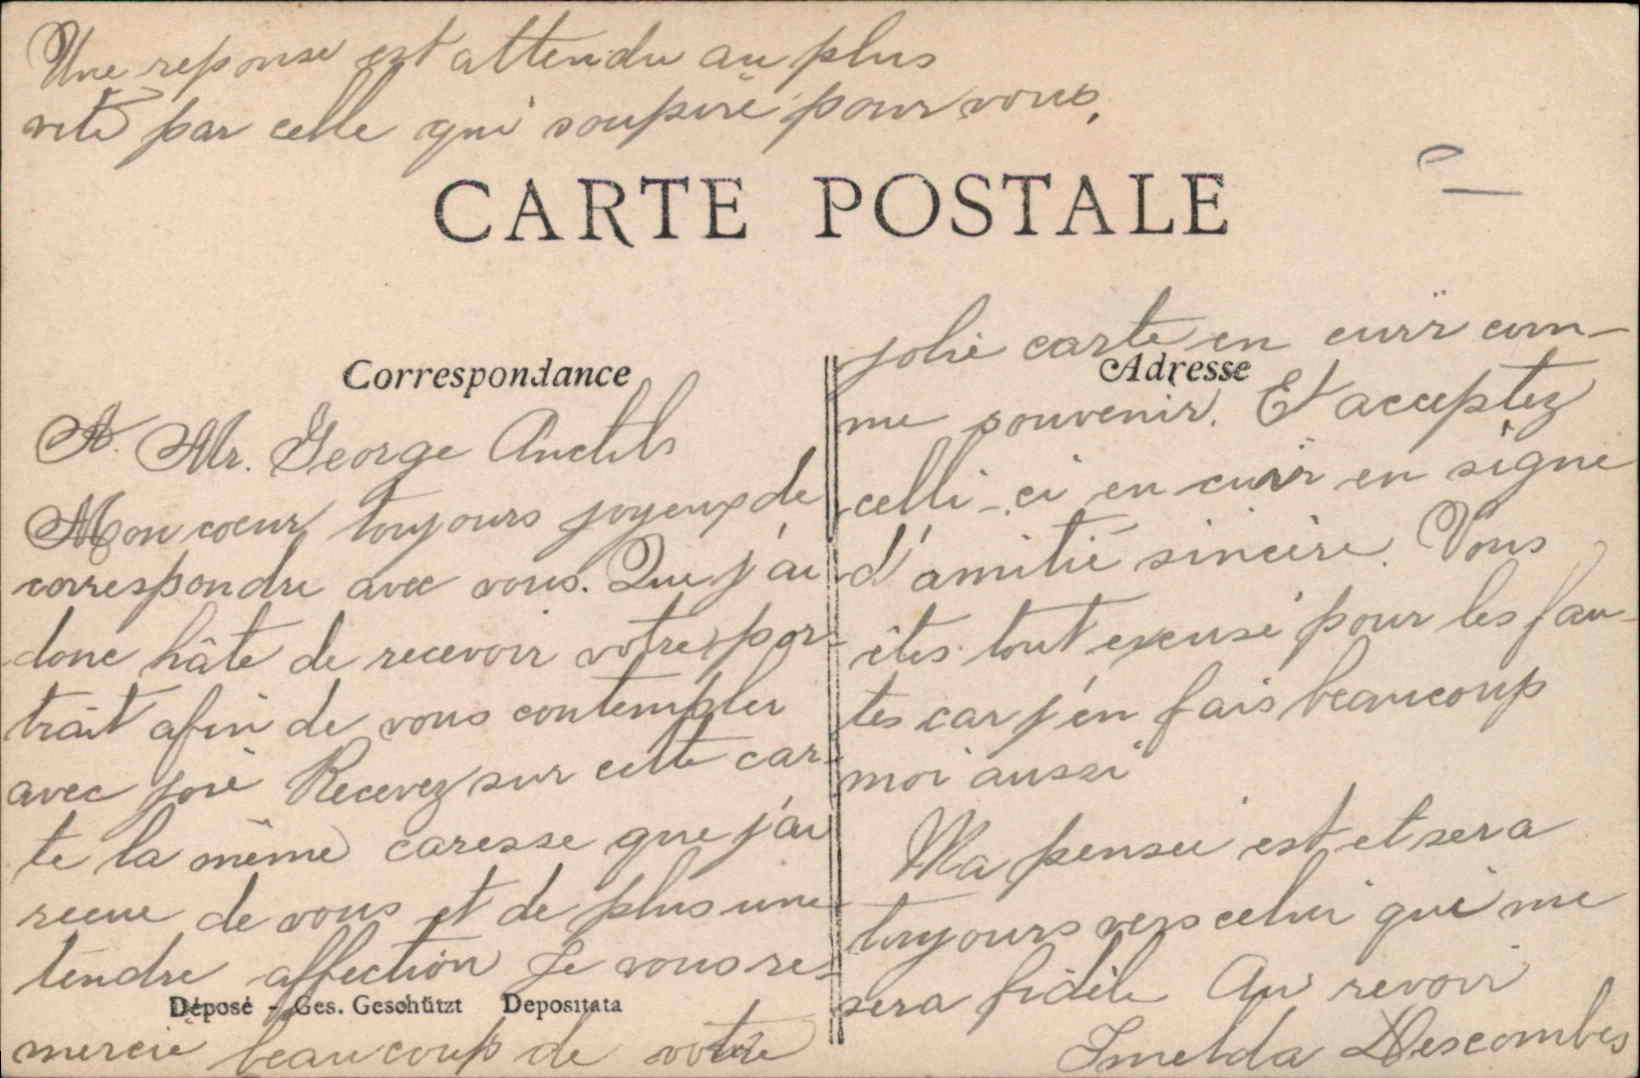 Une reponse est attendu au plus
vite par celle qui soupire pour vous.
CARTE POSTALE
Correspondance
A. Mr. George Anctils
Mon coeur toujours joyeux de
correspondre avec vous. Que j'ai
donc hâte de recevoir votre por-
trait afin de vous contempler
avec joie Recevez sur cette car-
te la même caresse que j'ai
recue de vous et de plus une
tendre affection Je vous re-
Déposé - Ges. Geschützt Depositata
mercie beaucoup de votre
jolie carte en cuir com-
Adresse
me souvenir. Et acceptez
celli-ci en cuir en signe
d'amitié sincère. Vous
êtes tout excusé pour les fau-
tes car j'en fais beaucoup
moi aussi
Ma pensée est et sera
toujours vers celui qui me
sera fidèle Au revoir
Imelda Descombes